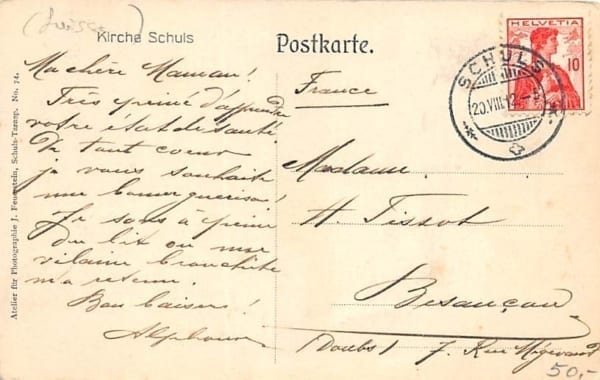 (Suisse)
Kirche Schuls
Postkarte.
HELVETIA
10
SCHULS
20.VIII.12
Ma chère Maman!
Très peiné d'apprendre
votre état de santé.
De tout coeur
je vous souhaite
une bonne guérison!
Je sors à peine
du lit ou une
vilaine bronchite
m'a retenu.
Bon baiser!
Alphonse
France
Madame
H. Tissot
Besançon
(Doubs) 7. Rue Mégevand
50,-
Atelier für Photographie J. Feuerstein, Schuls-Tarasp. No. 74.